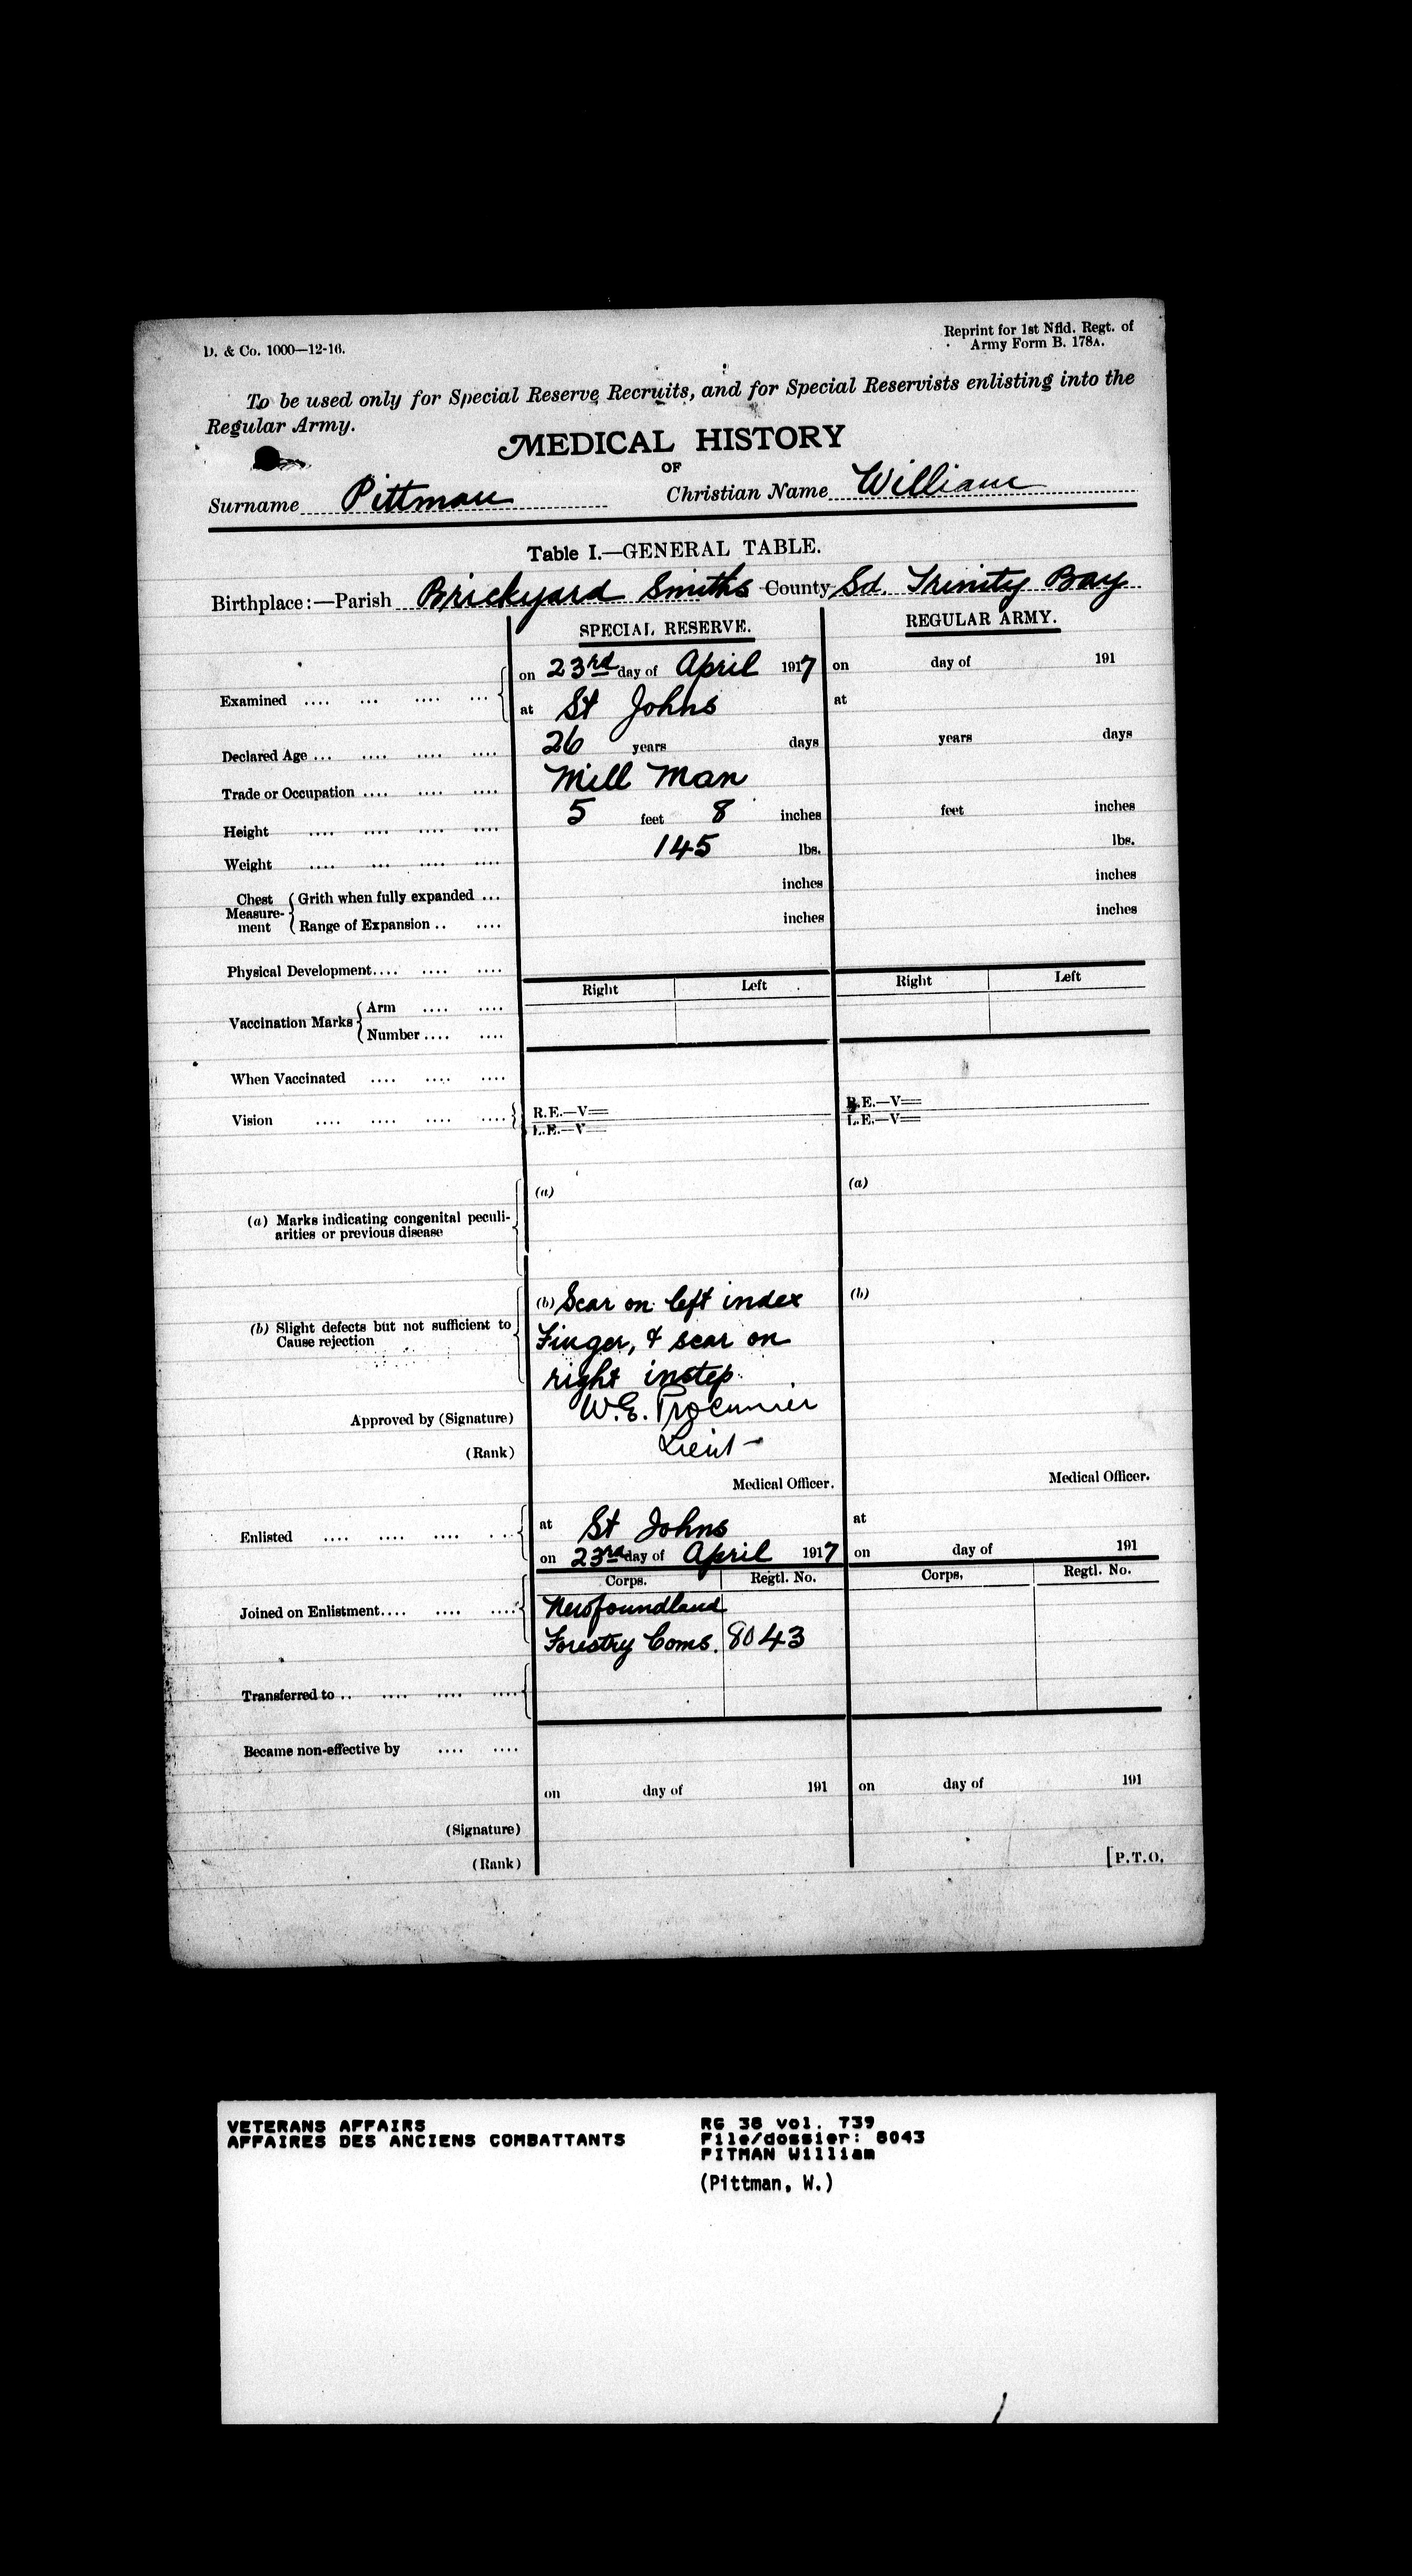 D. & Co. 1000—12-16.
Reprint for 1st Nfld. Regt. of
Army Form B. 178A.
To be used only for Special Reserve Recruits, and for Special Reservists enlisting into the
Regular Army.
MEDICAL HISTORY
OF
Surname Pittman Christian Name William
Table I.—GENERAL TABLE.
Birthplace:—Parish Brickyard Smiths County Sd. Trinity Bay
SPECIAL RESERVE. REGULAR ARMY.
Examined .... ... .... ... on 23rd day of April 1917 on day of 191
at St Johns at
Declared Age ... .... .... .... 26 years days years days
Trade or Occupation .... .... .... Mill Man
Height .... .... .... .... 5 feet 8 inches feet inches
Weight .... ... .... .... 145 lbs. lbs.
Chest Measure-ment Grith when fully expanded ... inches inches
Range of Expansion .. .... inches inches
Physical Development.... .... ....
Right Left Right Left
Vaccination Marks Arm .... ....
Number .... ....
When Vaccinated .... .... ....
Vision .... .... .... .... R.E.—V= R.E.—V=
L.E.—V= L.E.—V=
(a) (a)
(a) Marks indicating congenital peculi-
arities or previous disease
(b) Scar on left index (b)
(b) Slight defects but not sufficient to
Cause rejection
Finger, & scar on
right instep
Approved by (Signature) W.E.
(Rank) Lieut
Medical Officer. Medical Officer.
Enlisted .... .... .... .. at St Johns at
on 23rd day of April 1917 on day of 191
Corps. Regtl. No. Corps. Regtl. No.
Joined on Enlistment.... .... .... Newfoundland
Forestry Coms. 8043
Transferred to .. .... .... ....
Became non-effective by .... ....
on day of 191 on day of 191
(Signature)
(Rank)
[P.T.O.
VETERANS AFFAIRS
AFFAIRES DES ANCIENS COMBATTANTS
RG 38 vol. 739
File/dossier: 8043
PITMAN William
(Pittman, W.)